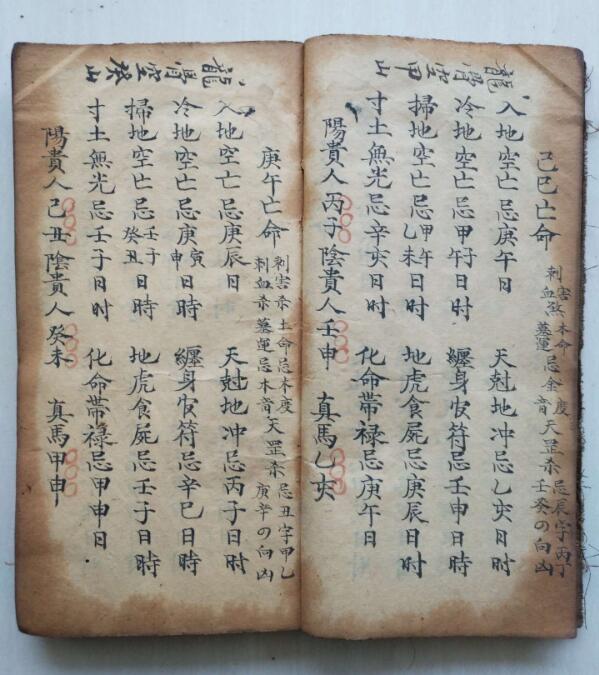 龍骨空甲山
己巳亡命
刺害煞本命忌 度
血 墓運 音 天罡杀 忌辰字丙丁
壬癸の向凶
入地空亡忌庚午日 天尅地冲忌乙亥日时
冷地空亡忌甲 日时 纏身官符忌壬申日時
掃地空亡忌甲午乙未日时 地虎食屍忌庚辰日时
寸土無光忌辛亥日时 化命帶祿忌庚午日
陽貴人丙子陰貴人壬申 真馬乙亥
龍骨空癸山
庚午亡命
刺害杀土命忌木度
刺血杀墓運忌木音 天罡杀 忌丑字甲乙
庚辛の向凶
入地空亡忌庚辰日 天尅地冲忌丙子日时
冷地空亡忌庚寅申日時 纏身官符忌辛巳日時
掃地空亡忌壬子癸丑日時 地虎食屍忌壬子日時
寸土無光忌壬子日时 化命帶祿忌甲申日
陽貴人己丑陰貴人癸未 真馬甲申